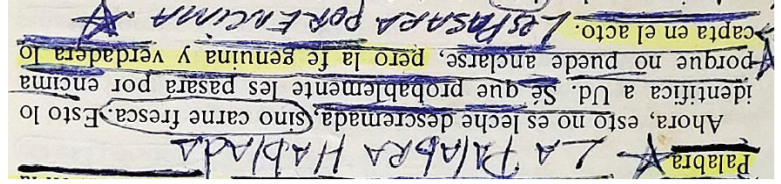 Palabra LA PALABRA HABLADA
Ahora, esto no es leche descremada, sino carne fresca. Esto lo
identifica a Ud. Sé que probablemente les pasará por encima
porque no puede anclarse, pero la fe genuina y verdadera lo
capta en el acto. LES PASARA POR ENCIMA